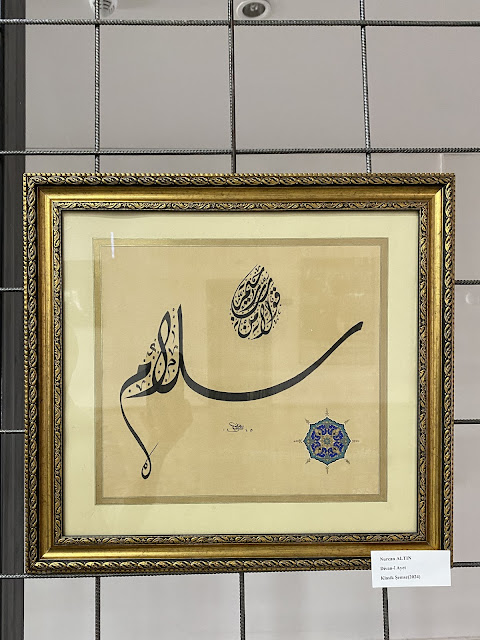 قولا من رب رحيم
سلام
Nurcan ALTIN
Divan-î Ayet
Klasik Şemse(2024)